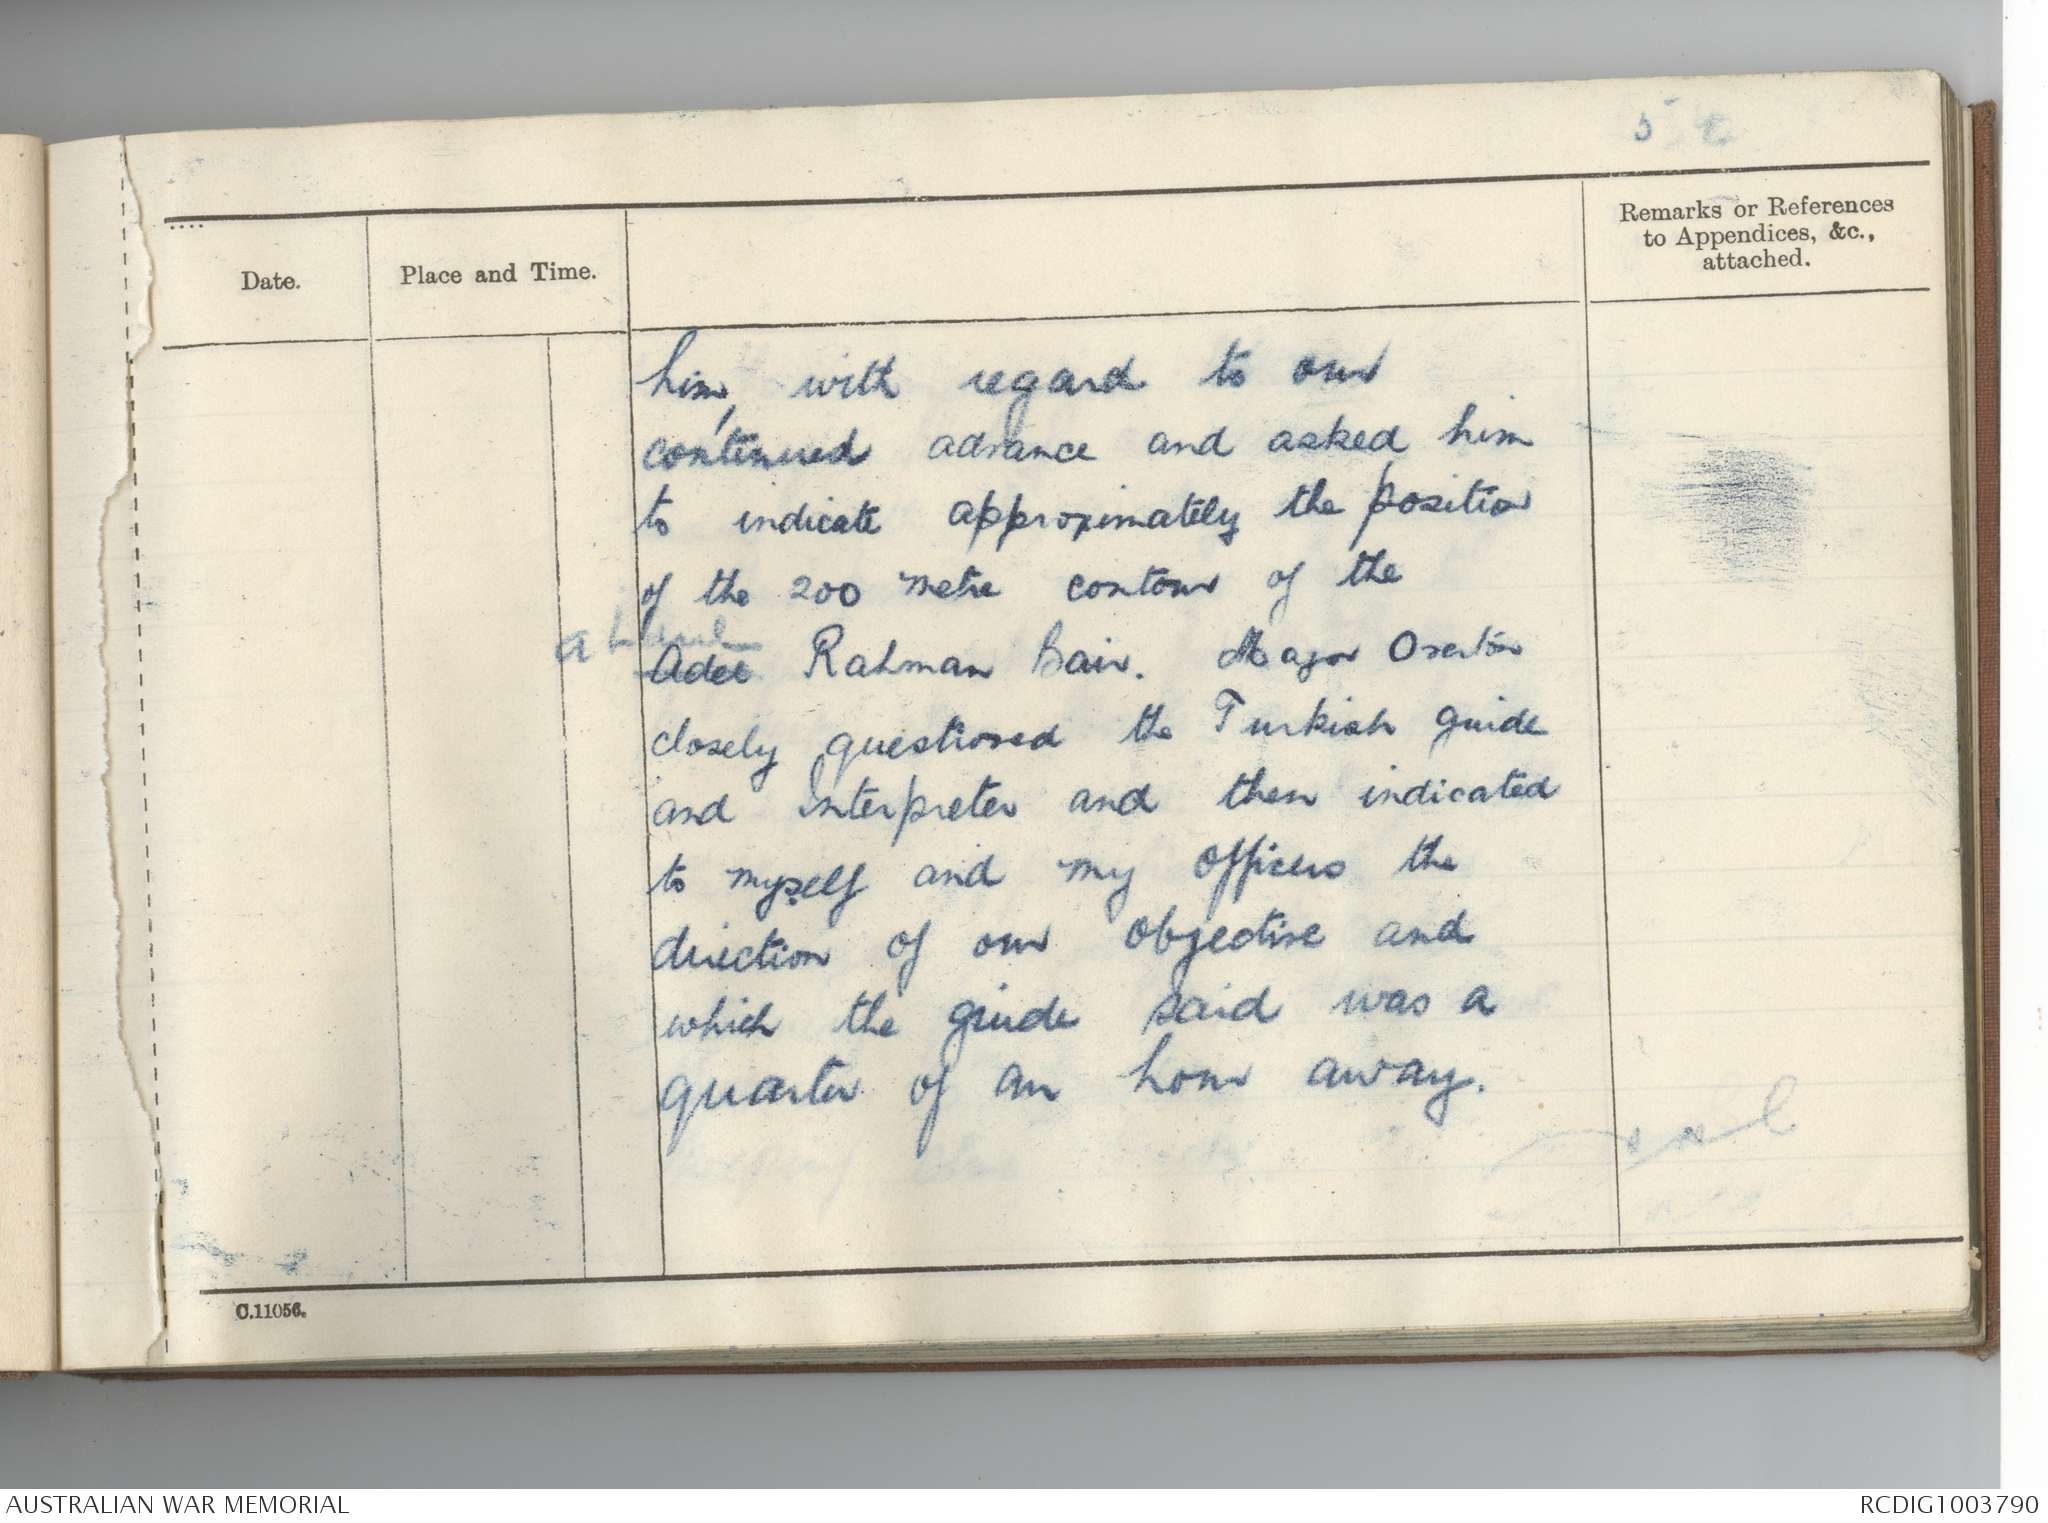 5
Date.
Place and Time.
Remarks or References
to Appendices, &c.,
attached.
him, with regard to our
continued advance and asked him
to indicate approximately the position
of the 200 metre contour of the
Adel Rahman Bair. Major Overton
closely questioned the Turkish guide
and interpreter and then indicated
to myself and my officers the
direction of our objective and
which the giude said was a
quarter of an hour away.
C.11056.
AUSTRALIAN WAR MEMORIAL
RCDIG1003790